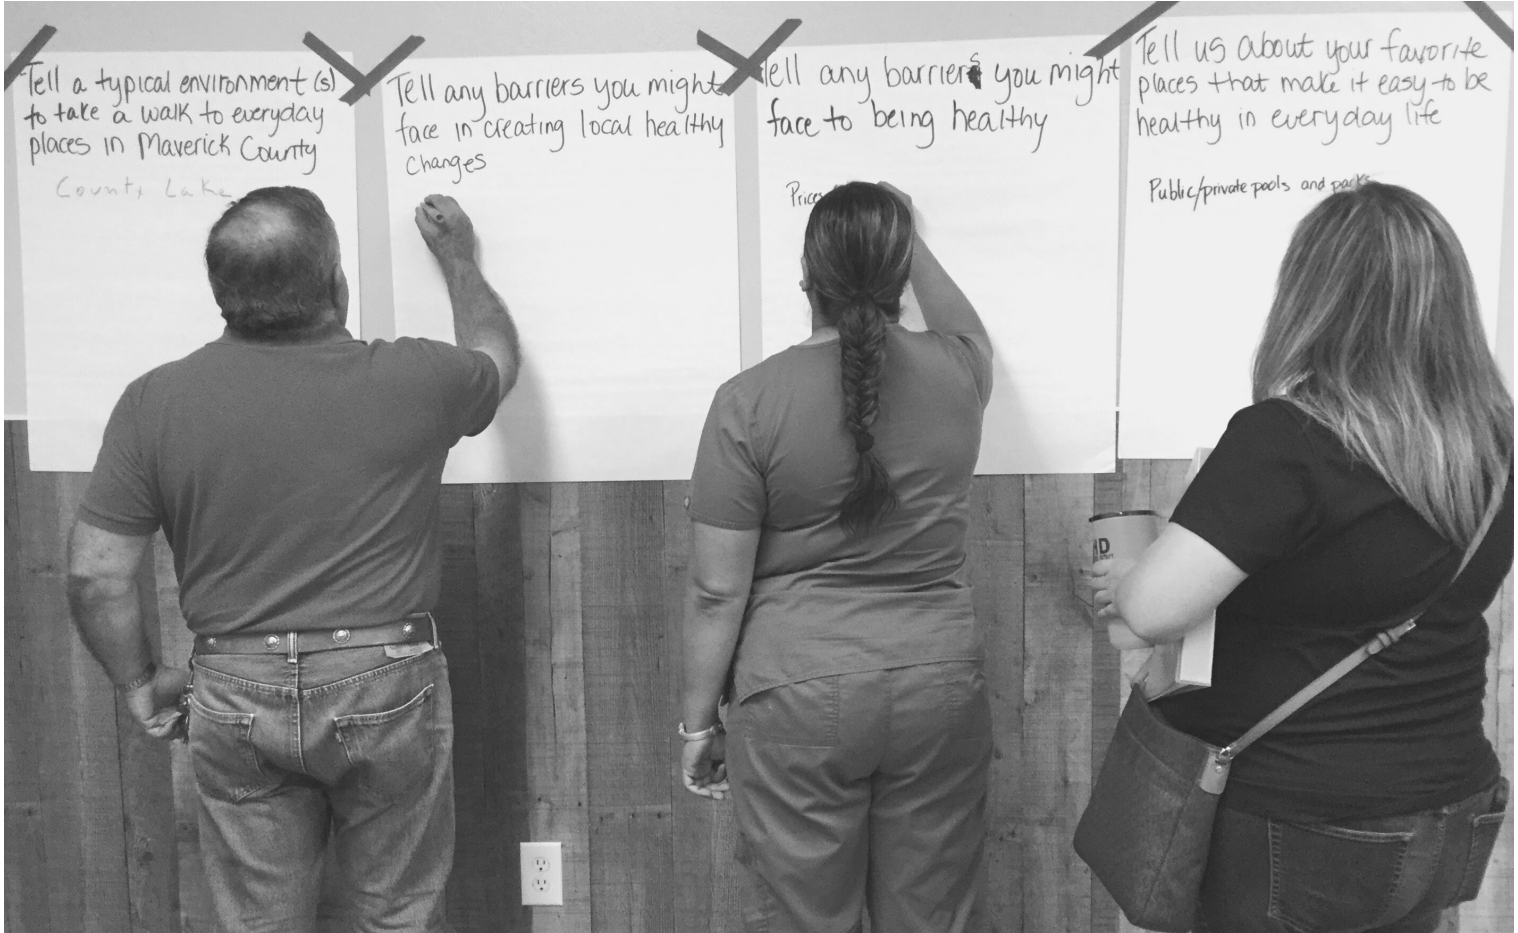 Tell a typical environment(s)
to take a walk to everyday
places in Maverick County
County Lake
Tell any barriers you might
face in creating local healthy
changes
Tell any barriers you might
face to being healthy
Prices
Tell us about your favorite
places that make it easy to be
healthy in everyday life
Public/private pools and parks
D